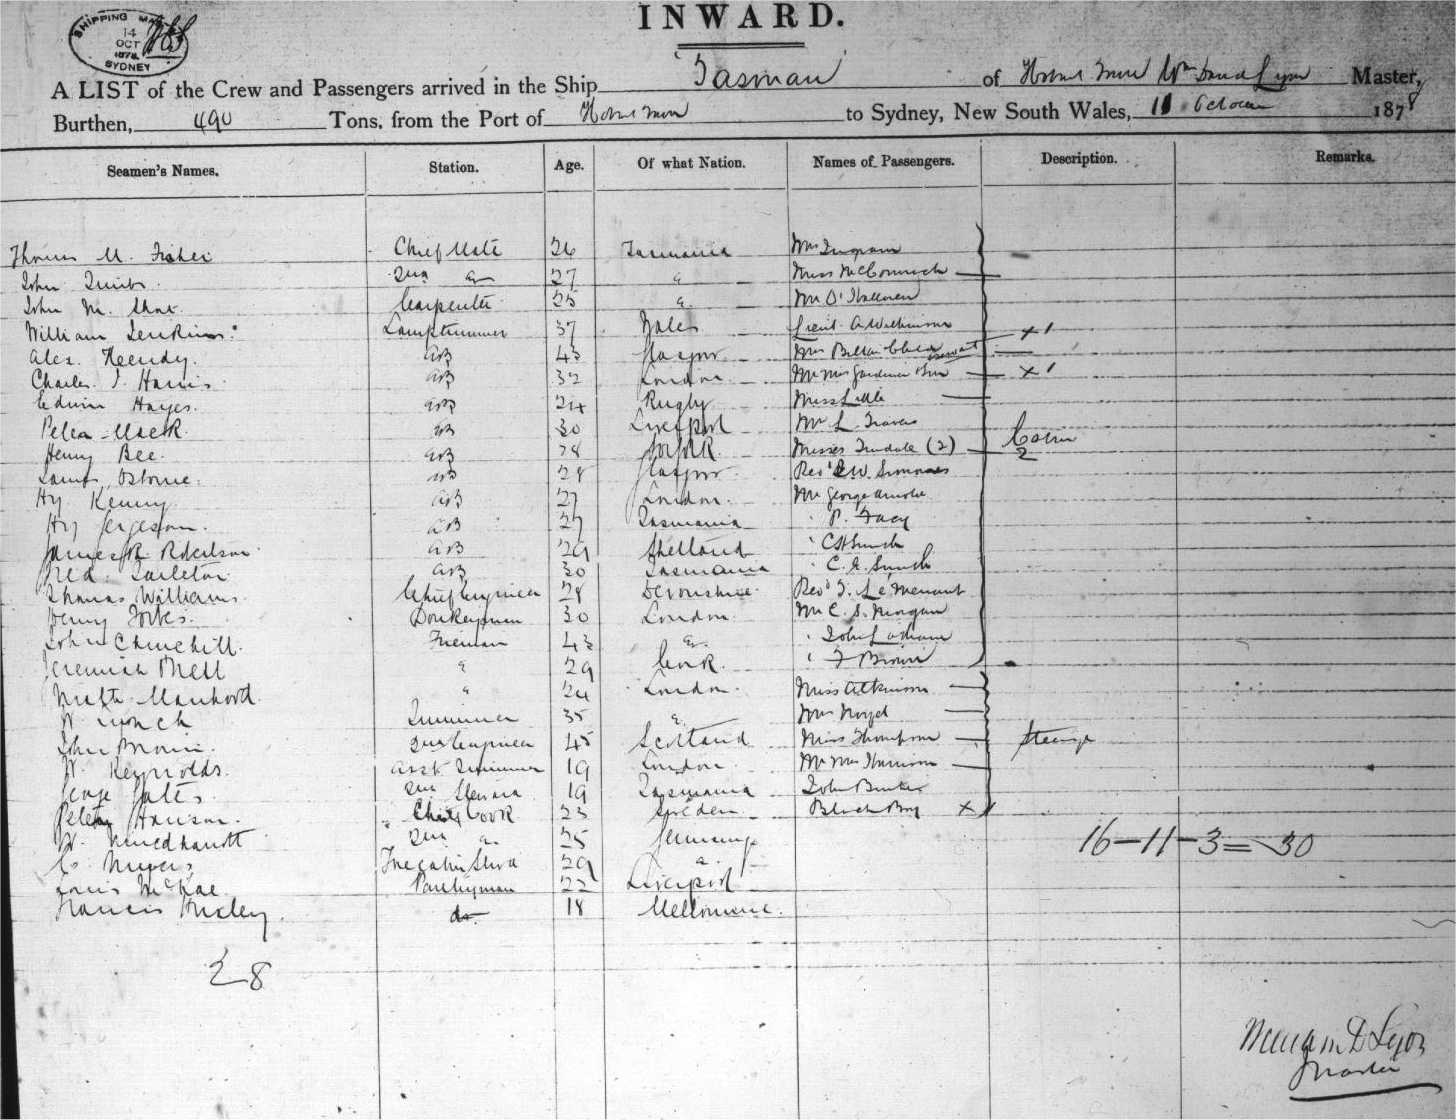 SHIPPING MA
14
OCT
1878
SYDNEY
INWARD.
A LIST of the Crew and Passengers arrived in the Ship Tasman of Hobart Town Wm David Lyon Master,
Burthen, 490 Tons, from the Port of Hobart Town to Sydney, New South Wales, 11 October 1878
Seamen's Names. Station. Age. Of what Nation. Names of Passengers. Description. Remarks.
Thomas M. Fisher Chief Mate 26 Tasmania Mrs Ingram
John 2nd 27 " Miss McCormick
John M. Carpenter 25 " Mr O'Halloran
William Jenkins Lamptrimmer 37 Wales Lieut. A Wilkinson x 1
Alex. AB 43 Glasgow Mrs servant
Charles J Harris AB 32 London Mr Mrs Gardiner x 1
Edwin Hayes. AB 24 Rugby Miss Little
Peter Mack AB 30 Liverpool Mr L Travers
Henry Bee. AB 28 Norfolk Misses Tindale (2) Cabin
2
James Osborne. AB 28 Glasgow Revd W. Simmons
Hy Kenny AB 27 London. Mr George Arnold
Hy AB 27 Tasmania " P. Facy
James R Robertson AB 29 Shetland " C H Lynch
Fred. Tarleton AB 30 Tasmania " C. E. Lynch
Thomas Williams Chief Engineer 28 Devonshire Revd J. Le Menant
Henry Forbes Donkeyman 30 London Mr C. S. Morgan
John Churchill. Fireman 43 " " John
Jeremiah Mell " 29 Cork. " F Brown
" 24 London. Miss Atkinson
W Trimmer 35 " Mrs
John Brown. 2nd Engineer 45 Scotland Miss Thompson Steerage
W. Reynolds. Asst Trimmer 19 London Mr Mrs Harrison
George Yates 2nd Steward 19 Tasmania John
Peter Hanson. Chief Cook 23 Sweden Black Boy x 1
W. 2nd " 25 Germany 16-11-3=30
C. Meyers Fore Cabin Stwd 29 "
Louis McRae Pantryman 22 Liverpool
Francis do 18 Melbourne.
28
William D Lyon
Master